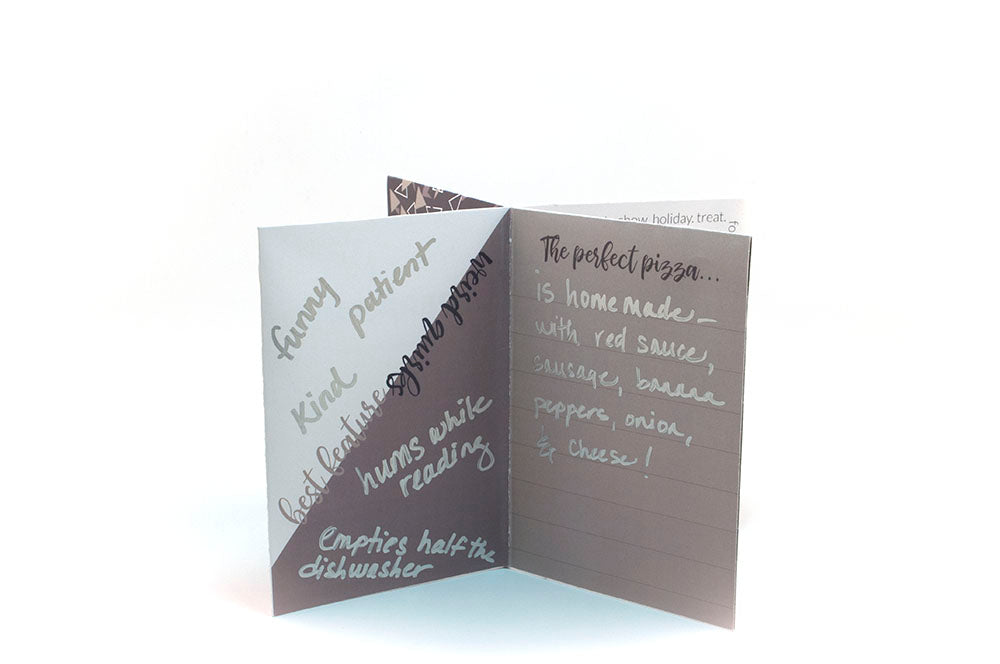 funny
patient
Kind
best feature
weird quirks
hums while
reading
empties half the
dishwasher
The perfect pizza...
is homemade-
with red sauce,
sausage, banana
peppers, onion,
& cheese!
show. holiday. treat.
fo